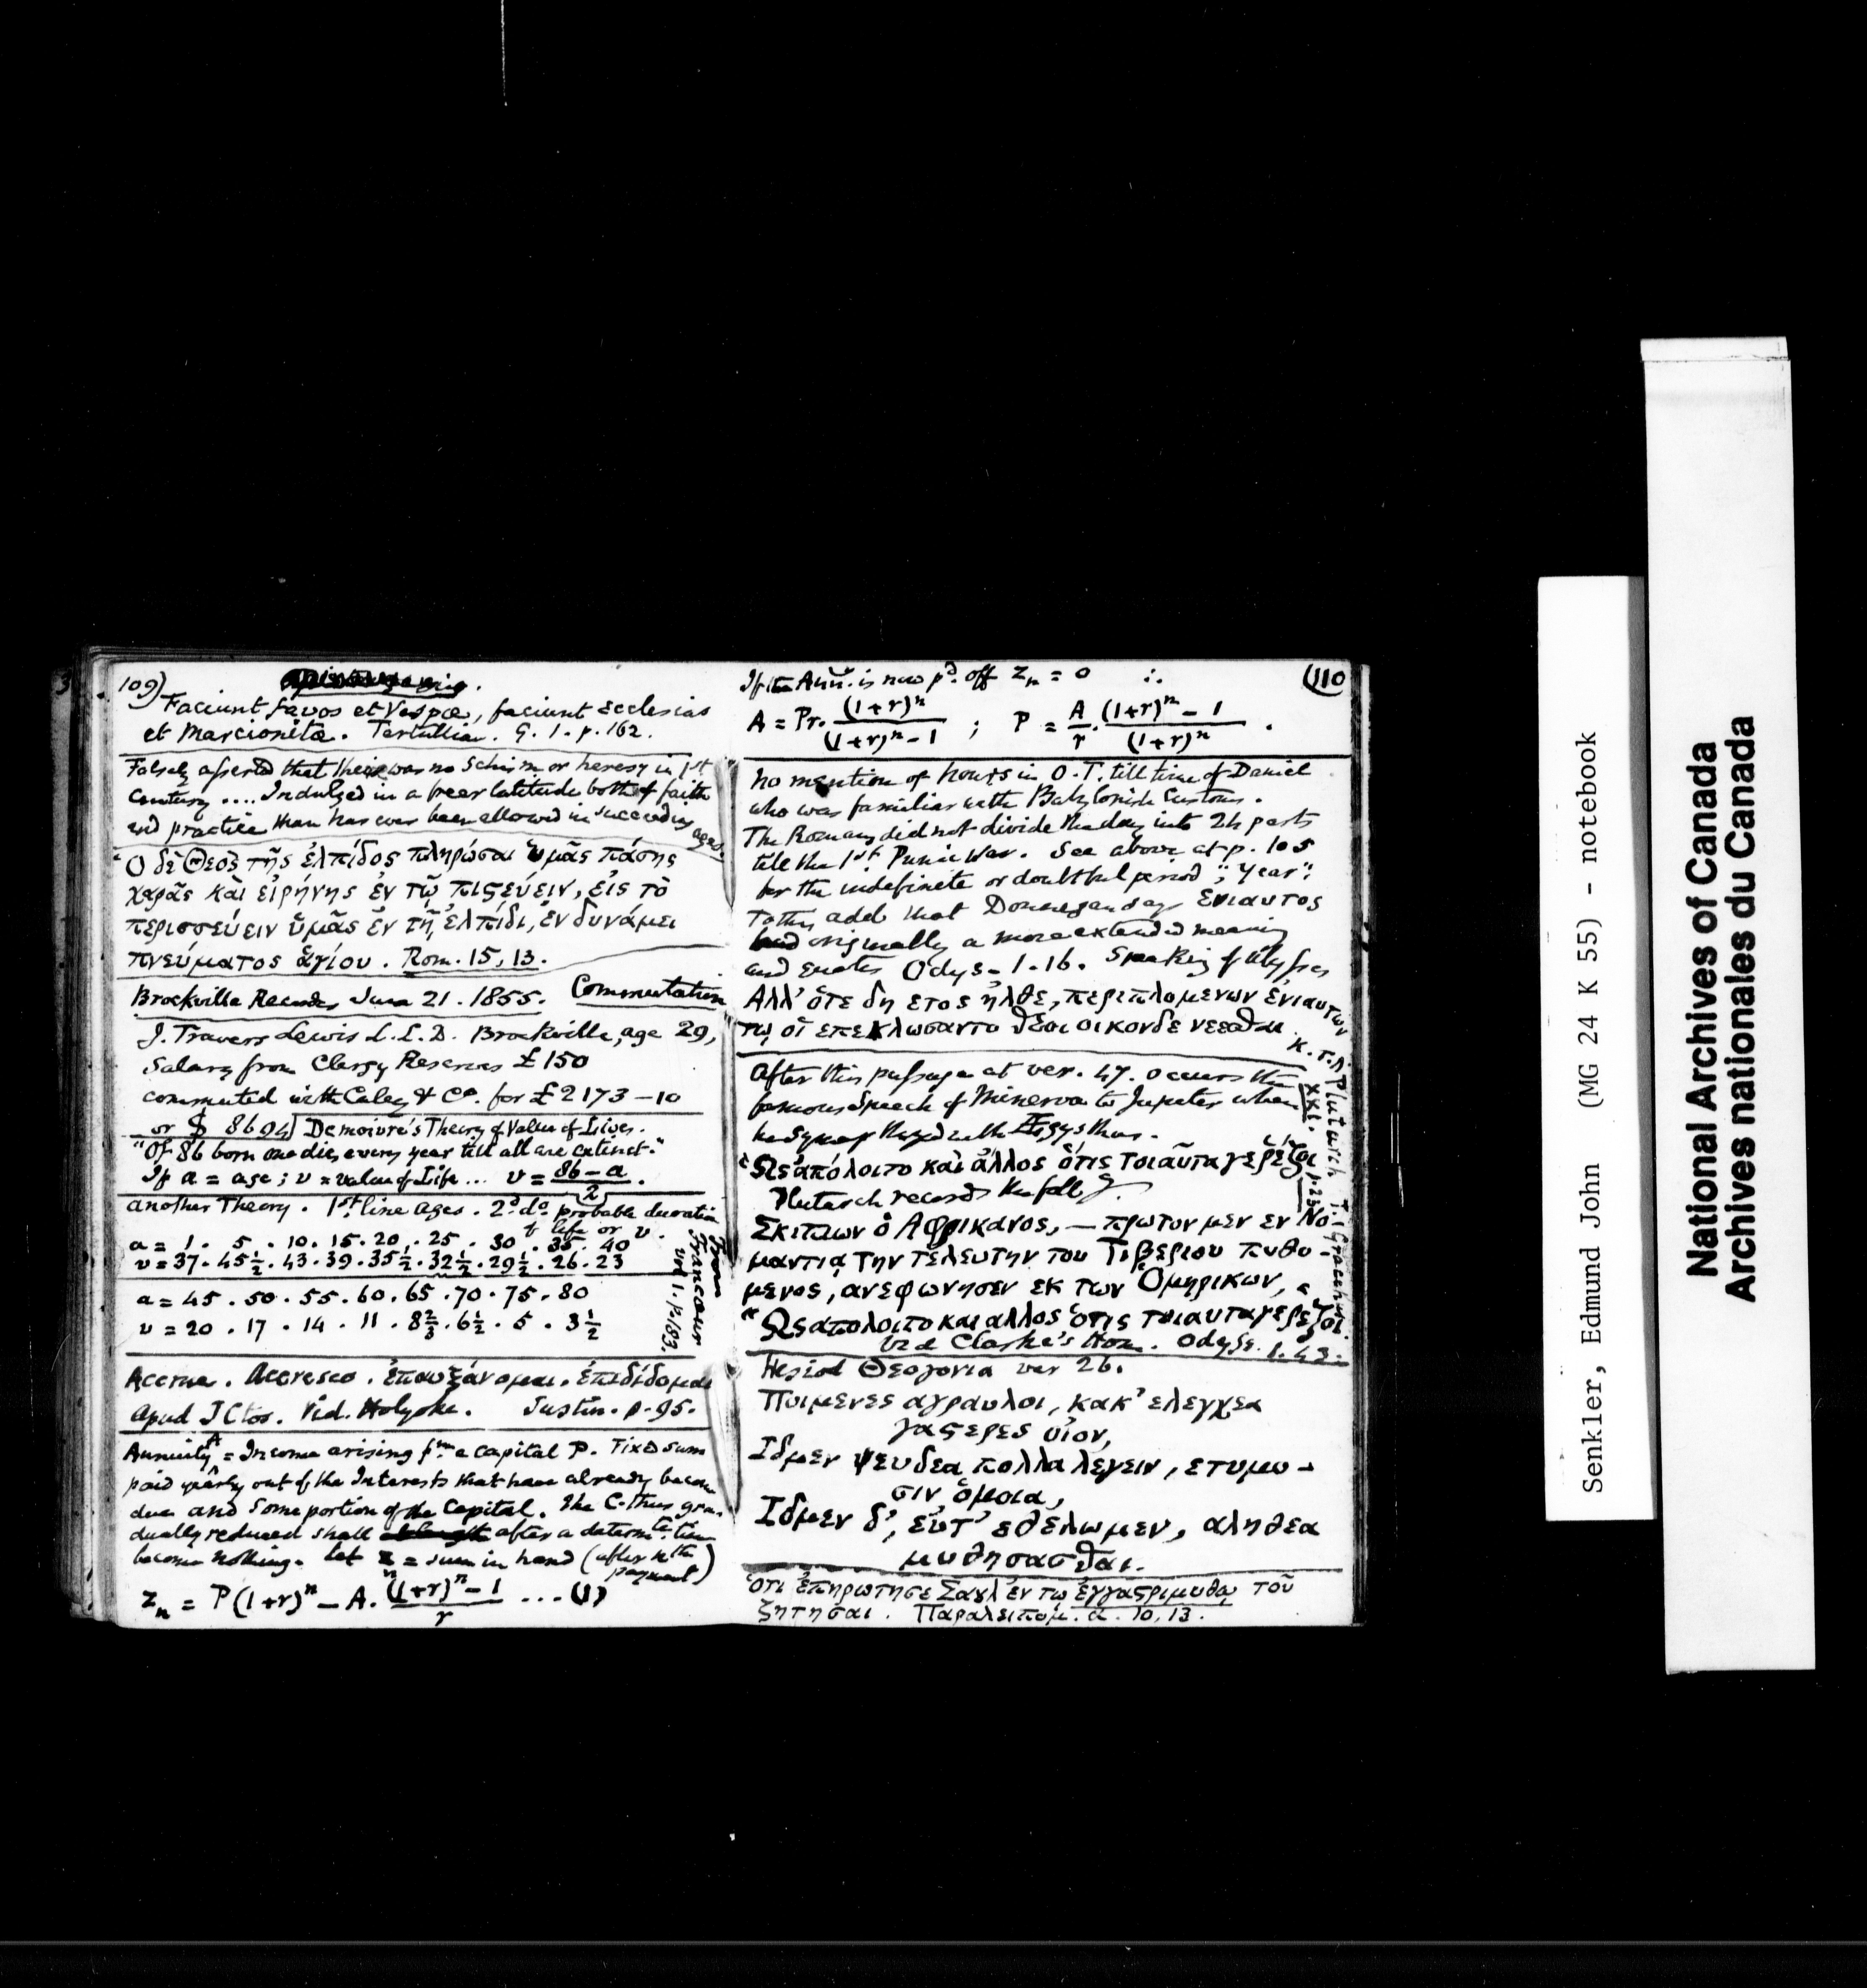 109)
Faciunt favos et Vespæ, faciunt Ecclesias
et Marcionitæ. Tertullian. G. 1. p. 162.
Falsely asserted that there was no Schism or heresy in 1st
Century .... Indulged in a freer latitude both of faith
and practice than has ever been allowed in succeeding
ages.
Ὁ δὲ Θεος τῆς ἐλπίδος πληρώσαι ὑμᾶς πάσης
χαρᾶς καὶ εἰρήνης ἐν τῷ πιςεύειν, εἰς τὸ
περισσεύειν ὑμᾶς ἐν τῇ ἐλπίδι, ἐν δυνάμει
πνεύματος ἁγίου. Rom. 15, 13.
Brockville Recorder June 21. 1855. Commutation
J. Travers Lewis L.L.D. Brockville, age 29,
Salary from Clergy Reserves £150
commuted with Caley & Co. for £2173-10
or $ 8694 Demoivre's Theory of Value of Lives.
"Of 86 born one dies every year till all are extinct."
If a = age; v = value of Life ... v = (86 - a)/2.
another Theory. 1st line ages. 2d do probable duration
of life or v.
a = 1. 5. 10. 15. 20. 25. 30. 35. 40
v = 37. 45½. 43. 39. 35½. 32½. 29½. 26. 23
a = 45. 50. 55. 60. 65. 70. 75. 80
v = 20. 17. 14. 11. 8⅔. 6½. 5. 3½
From
Francour
vol 1. p. 193.
Accrue. Accresco. ἐπαυξάνομαι. ἐπιδίδομαι
Apud JCtos. Vid. Holyoke. Justin. p. 95.
Annuity A = Income arising fm a capital P. Fixd sum
paid yearly out of the Interests that have already become
due and some portion of the Capital. The C. thus gra-
dually reduced shall after a determte time
become nothing. Let z = sum in hand (after nth
payment)
zn = P(1+r)^n - A. ((1+r)^n - 1)/r ... (1)
(110
If the Ann. is now pd. off zn = 0 ∴
A = Pr. (1+r)^n/((1+r)^n - 1) ; P = A/r. ((1+r)^n - 1)/(1+r)^n .
No mention of hours in O.T. till time of Daniel
who was familiar with Babylonish Customs.
The Romans did not divide the day into 24 parts
till the 1st Punic War. See above at p. 105
for the indefinite or doubtful period "Year";
To this add that Donnegan says Ενιαυτος
had originally a more extended meaning
and quotes Odys. 1. 16. Speaking of Ulysses
Αλλ' ὅτε δη ετος ἦλθε, περιπλομενων ἐνιαυτων
τῳ οἱ επεκλωσαντο θεοι οικονδε νεεσθαι
κ. τ. λ.
After this passage at ver. 47. occurs the
famous Speech of Minerva to Jupiter when
he sympathized with Ægysthus.
Ὡς ἀπόλοιτο καὶ ἄλλος ὅτις τοιαῦτα γε ῥέζοι
Plutarch records the follg.
Σκιπιων ὁ Αφρικανος, — πρωτον μεν εν Νο-
μαντιᾳ την τελευτην του Τιβεριου πυθο-
μενος, ανεφωνησεν εκ των Ὁμηρικων,
"Ως απολοιτο και αλλος ὅτις τοιαυτα γε ῥεζοι.
Vid Clarke's Hom. Odyss. 1. 43.
Plutarch T. Gracchus.
XXI.
Hesiod Θεογονια ver 26.
Ποιμενες αγραυλοι, κακ' ελεγχεα
γαςερες οἶον,
Ιδμεν ψευδεα πολλα λεγειν, ετυμοι-
σιν ὁμοια,
Ιδμεν δ', εὖτ' εθελωμεν, αληθεα
μυθησασθαι.
ὅτι ἐπηρωτησε Σαȣλ ἐν τῳ ἐγγαςριμυθῳ τοῦ
ζητησαι. Παραλειπομ. α. 10, 13.
Senkler, Edmund John (MG 24 K 55) - notebook
National Archives of Canada
Archives nationales du Canada